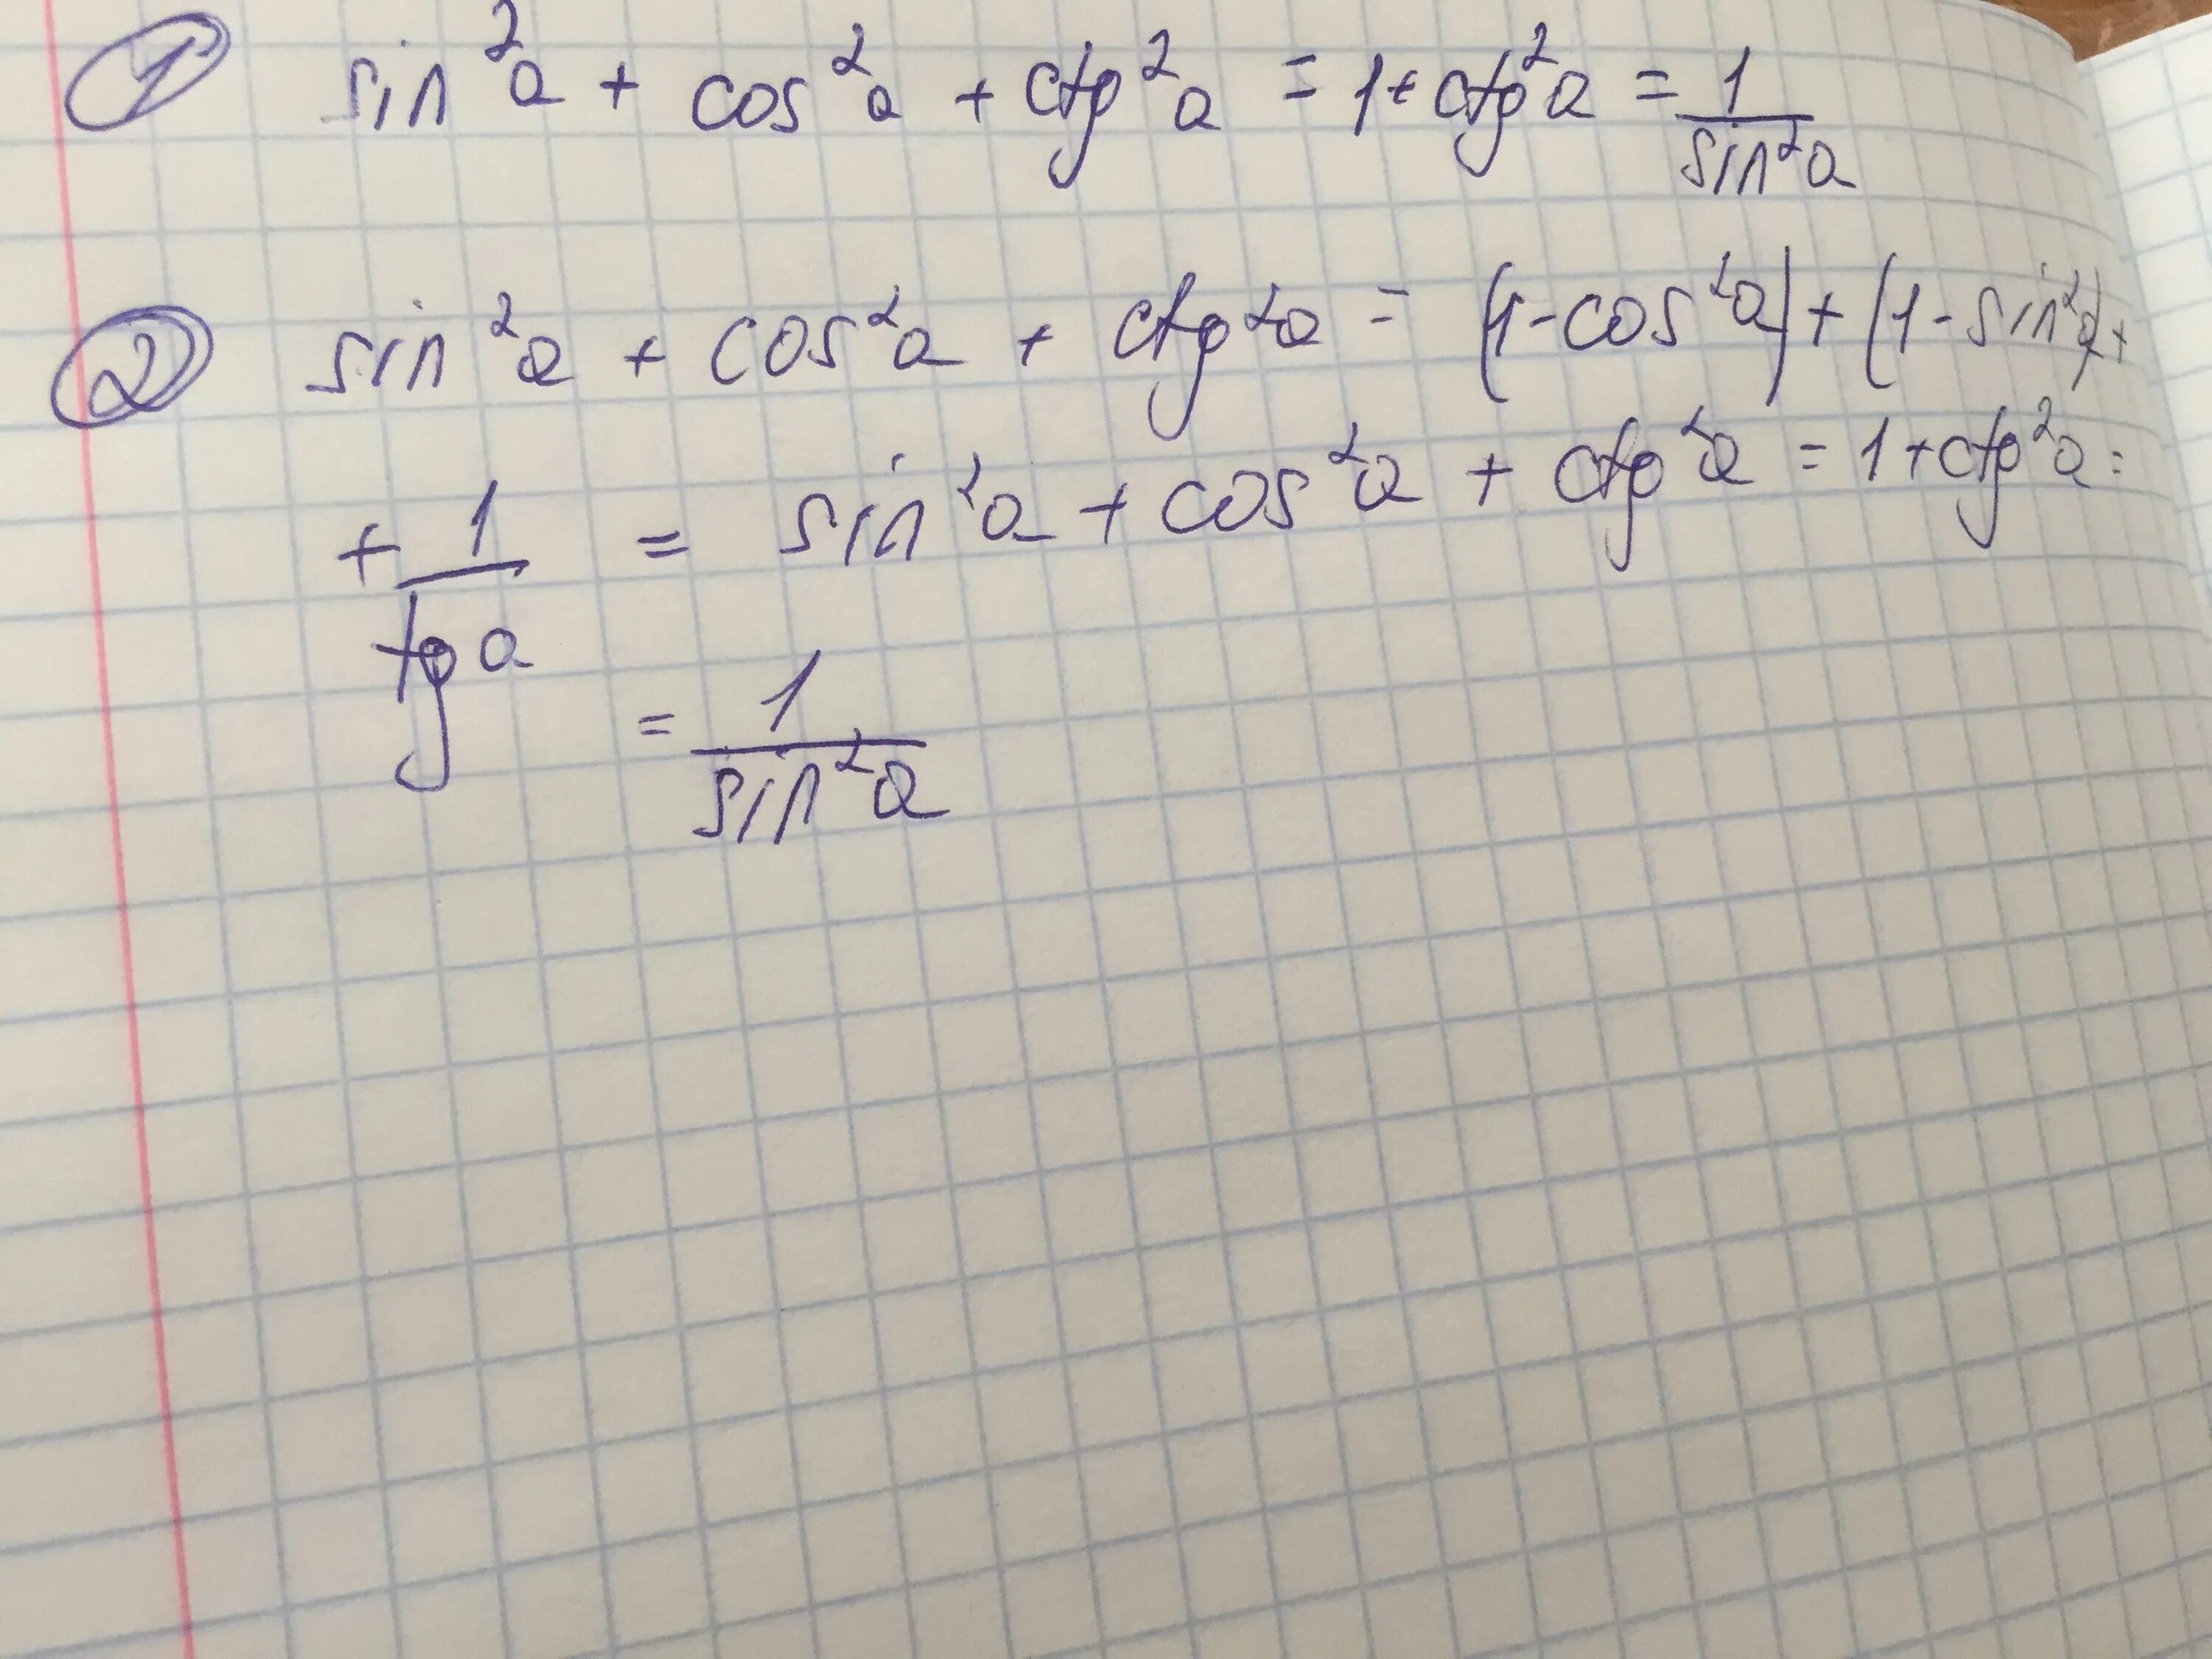 ① sin²a + cos²a + ctg²a = 1 + ctg²a = 1/sin²a
② sin²a + cos²a + ctg²a = (1 - cos²a) + (1 - sin²a) +
+ 1/tg a = sin²a + cos²a + ctg²a = 1 + ctg²a =
= 1/sin²a